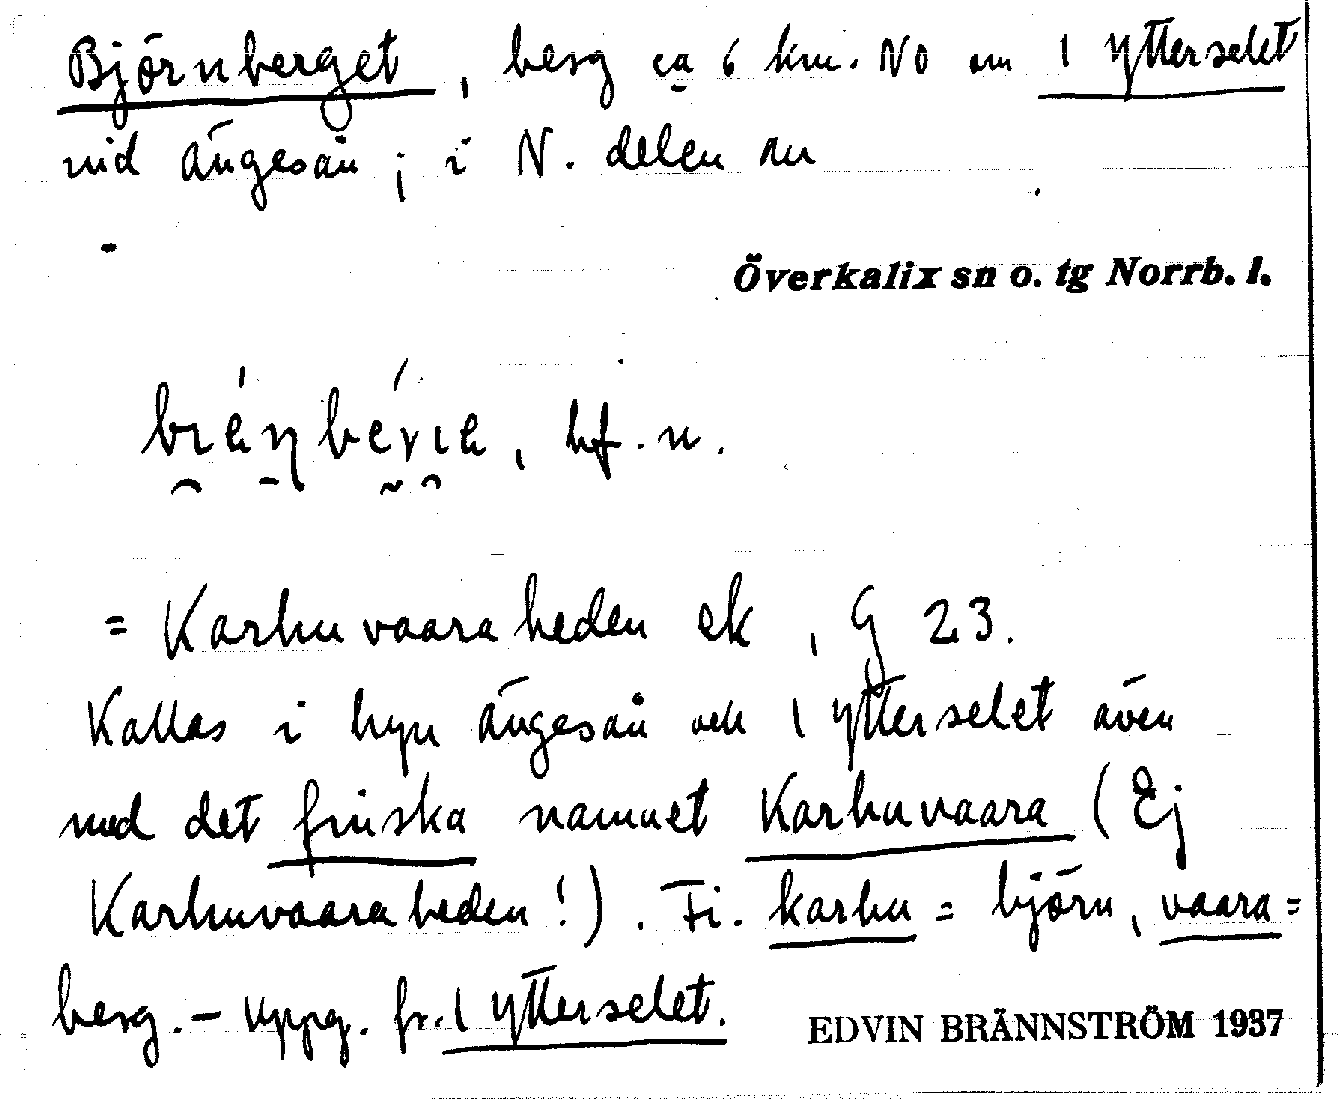 Björnberget, berg ca 6 km. NO om 1 Ytterselet
vid Ängesån; i N. delen av
Överkalix sn o. tg Norrb. l.
hf. n.
= Karhuvaaraheden ek, G 23.
Kallas i byn Ängesån och 1 Ytterselet även
med det finska namnet Karhuvaara (Ej
Karhuvaaraheden!). Fi. karhu = björn, vaara =
berg. – Uppg. fr. 1 Ytterselet.
EDVIN BRÄNNSTRÖM 1937